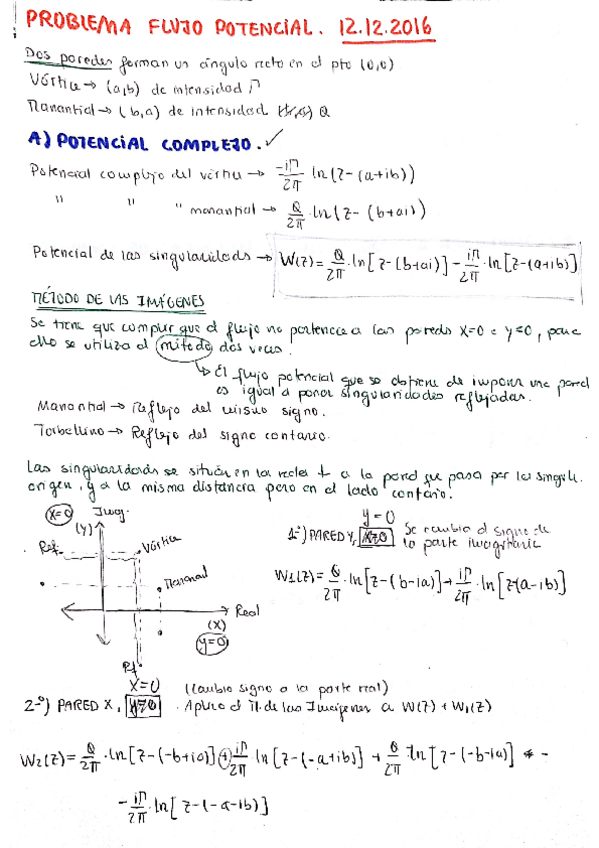 PROBLEMA FLUJO POTENCIAL. 12.12.2016
Dos paredes forman un ángulo recto en el pto (0,0)
Vórtice → (a,b) de intensidad Γ
Manantial → (b,a) de intensidad Q
A) POTENCIAL COMPLEJO. ✓
Potencial complejo del vórtice → -iΓ/2π ln(z-(a+ib))
" " " manantial → Q/2π · ln(z-(b+ai))
Potencial de las singularidads → W(z) = Q/2π · ln[z-(b+ai)] - iΓ/2π · ln[z-(a+ib)]
MÉTODO DE LAS IMÁGENES
Se tiene que cumplir que el flujo no pertenece a las paredes x=0 e y=0, para
ello se utiliza el método dos veces.
↳ El flujo potencial que se obtiene de imponer una pared
es igual a poner singularidades reflejadas.
Manantial → Reflejo del mismo signo.
Torbellino → Reflejo del signo contario.
Las singularidads se sitúan en las rectas ⊥ a la pared que pasa por las singula.
origen, y a la misma distancia pero en el lado contario.
x=0 Imag.
(y)
Ref.
Vórtice
Manantial
Real
(x)
y=0
Rf
y=0
1º) PARED Y, x=0 Se cambia el signo de
la parte imaginaria
W1(z) = Q/2π · ln[z-(b-ia)] + iΓ/2π · ln[z-(a-ib)]
x=0 (Cambio signo a la parte real)
2º) PARED X, y=0 . Aplico el M. de las Imágenes a W(z) + W1(z)
W2(z) = Q/2π · ln[z-(-b+ia)] + iΓ/2π ln[z-(-a+ib)] + Q/2π · ln[z-(-b-ia)] -
- iΓ/2π · ln[z-(-a-ib)]